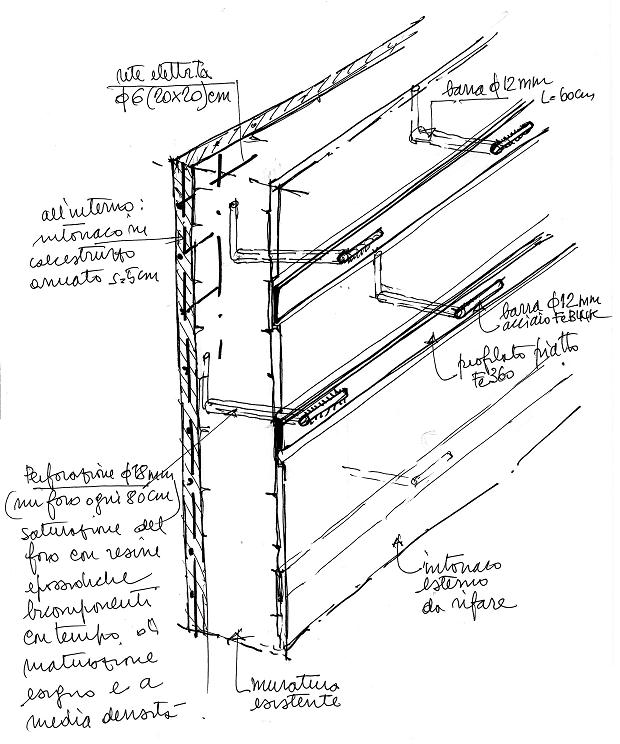 rete elettr.ta
ϕ6 (20x20)cm
barra ϕ12mm
L=60cm
all'interno:
intonaco in
calcestruzzo
armato s=5cm
barra ϕ12mm
acciaio FeB44K
profilato piatto
Fe360
Perforazione ϕ18mm
(un foro ogni 80cm)
saturazione del
foro con resine
epossidiche
bicomponenti
con tempo di
maturazione
e a
media densità
intonaco
esterno
da rifare
muratura
esistente